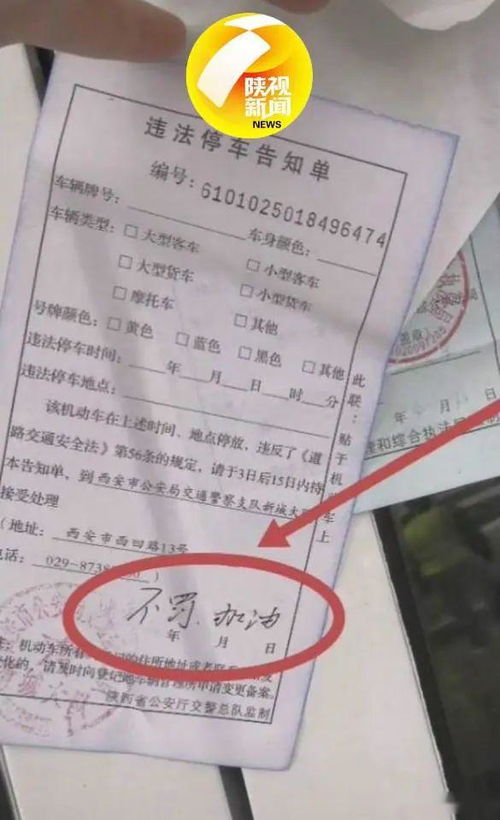 陕视
新闻
NEWS
违法停车告知单
编号：6101025018496474
车辆牌号： 车身颜色：
车辆类型： □大型客车 □小型客车
□大型货车 □小型货车
□摩托车 □其他
号牌颜色：□黄色 □蓝色 □黑色 □其他
违法停车时间： 年 月 日 时 分
违法停车地点：
该机动车在上述时间、地点停放，违反了《道
路交通安全法》第56条的规定，请于3日后15日内持
本告知单，到西安市公安局交通警察支队新城大队
接受处理
（地址： 西安市西四路13号
电话： 029-8738 0 ）
不罚.加油
年 月 日
注：机动车所有 的住所地址或者联系
变化的，请及时向登记地车辆管理所申请变更备案。
陕西省公安厅交警总队监制
此联：贴于机动车上